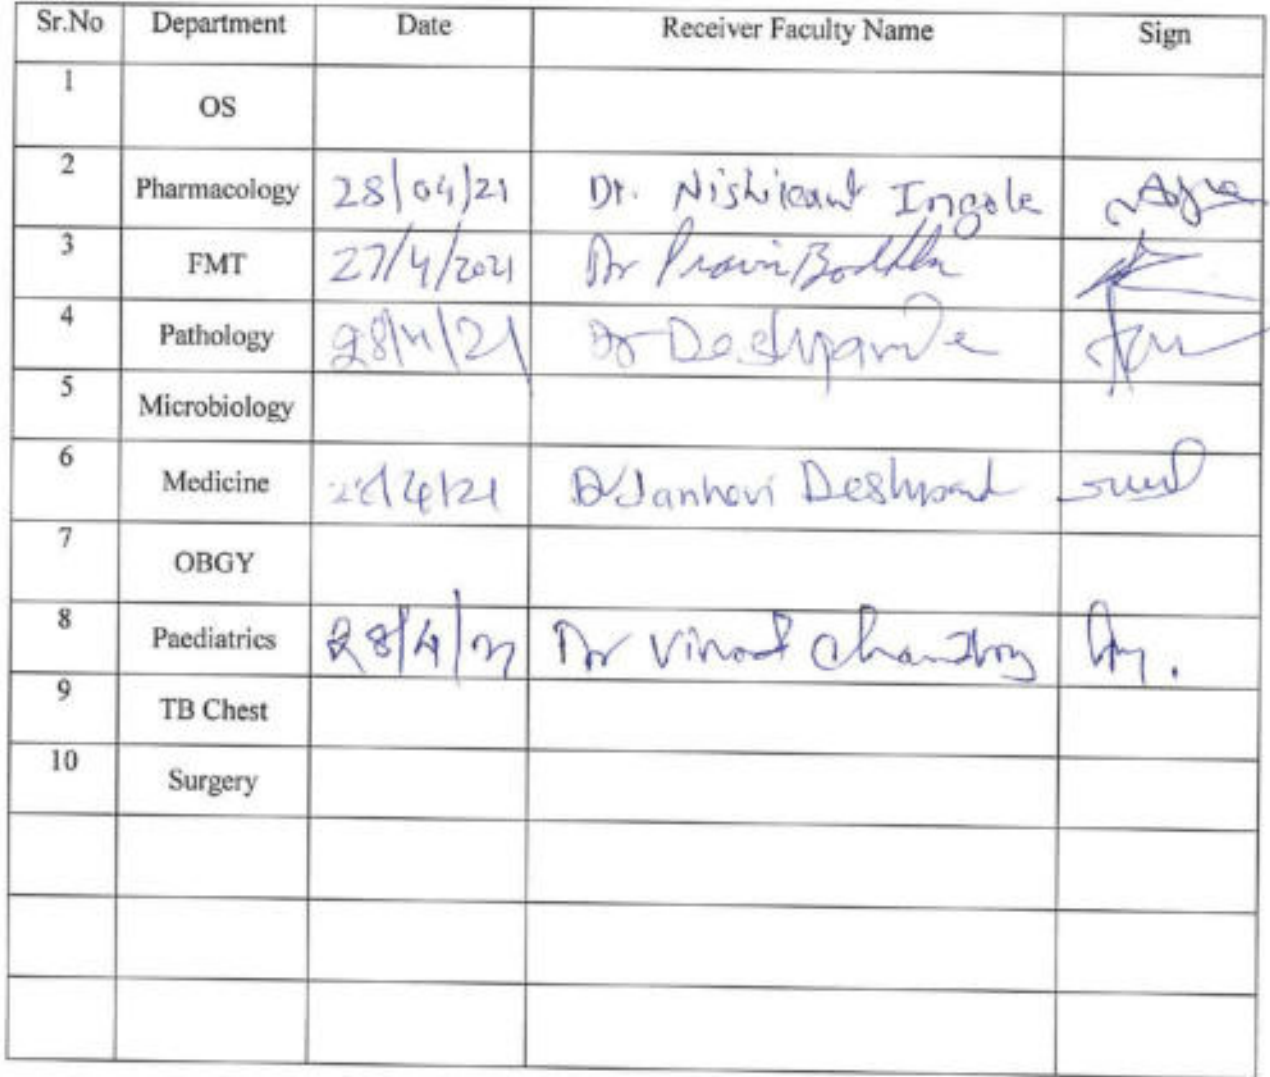 Sr.No Department Date Receiver Faculty Name Sign
1 OS
2 Pharmacology 28/04/21 Dr. Nishikant Ingole
3 FMT 27/4/2021 Dr Pravin
4 Pathology 28/4/21 Dr Deshpande
5 Microbiology
6 Medicine Dr Janhavi Deshpand
7 OBGY
8 Paediatrics 28/4/21 Dr Vinod
9 TB Chest
10 Surgery